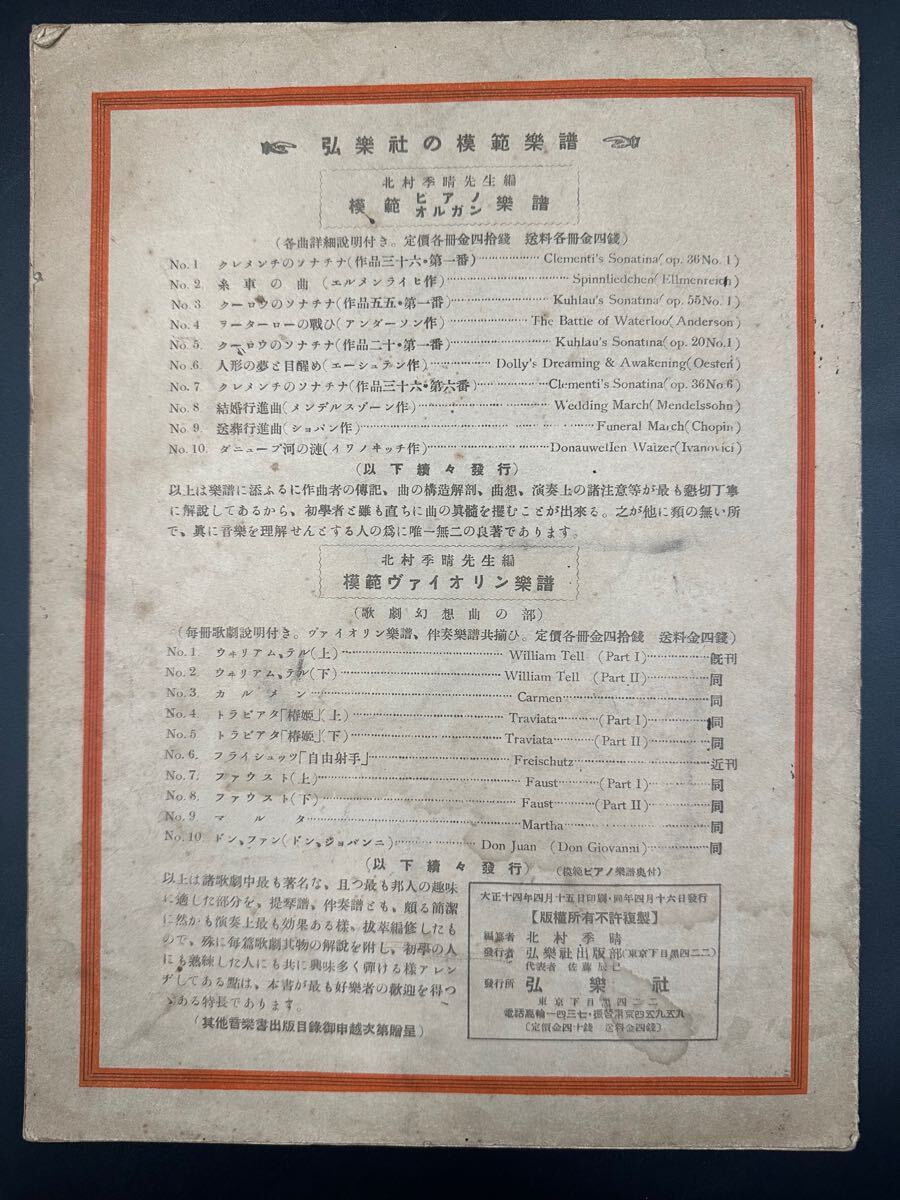 弘樂社の模範樂譜
北村季晴先生編
模範ピアノオルガン樂譜
(各曲詳細說明付き。定價各冊金四拾錢 送料各冊金四錢)
No. 1 クレメンチのソナチナ(作品三十六・第一番)…………Clementi's Sonatina(op. 36 No. 1)
No. 2. 糸車の曲(エルメンライヒ作)…………Spinnliedchen(Ellmenreich)
No. 3. クーロウのソナチナ(作品五五・第一番)…………Kuhlau's Sonatina(op. 55 No. 1)
No. 4 ヲーターローの戰ひ(アンダーソン作)…………The Battle of Waterloo(Anderson)
No. 5. クーロウのソナチナ(作品二十・第一番)…………Kuhlau's Sonatina(op. 20 No. 1)
No. 6. 人形の夢と目醒め(エーシュテン作)…………Dolly's Dreaming & Awakening(Oesten)
No. 7 クレメンチのソナチナ(作品三十六・第六番)…………Clementi's Sonatina(op. 36 No. 6)
No. 8. 結婚行進曲(メンデルスゾーン作)…………Wedding March(Mendelssohn)
No. 9. 送葬行進曲(ショパン作)…………Funeral March(Chopin)
No. 10. ダニューブ河の漣(イワノヰッチ作)…………Donauwellen Walzer(Ivanovici)
(以下續々發行)
以上は樂譜に添ふるに作曲者の傳記、曲の構造解剖、曲想、演奏上の諸注意等が最も懇切丁寧
に解說してあるから、初學者と雖も直ちに曲の眞髓を握むことが出來る。之が他に類の無い所
で、眞に音樂を理解せんとする人の爲に唯一無二の良著であります。
北村季晴先生編
模範ヴァイオリン樂譜
(歌劇幻想曲の部)
(每冊歌劇說明付き。ヴァイオリン樂譜、伴奏樂譜共揃ひ。定價各冊金四拾錢 送料金四錢)
No. 1. ウヰリアム、テル(上)…………William Tell (Part I)…………既刊
No. 2. ウヰリアム、テル(下)…………William Tell (Part II)…………同
No. 3. カルメン…………Carmen…………同
No. 4. トラビアタ「椿姬」(上)…………Traviata…………(Part I)…………同
No. 5. トラビアタ「椿姬」(下)…………Traviata…………(Part II)…………同
No. 6. フライシュッツ「自由射手」…………Freischutz…………近刊
No. 7. ファウスト(上)…………Faust…………(Part I)…………同
No. 8. ファウスト(下)…………Faust…………(Part II)…………同
No. 9. マルタ…………Martha…………同
No. 10 ドン、ファン(ドン、ジョバンニ)…………Don Juan (Don Giovanni)…………同
(以下續々發行) (模範ピアノ樂譜奥付)
以上は諸歌劇中最も著名な、且つ最も邦人の趣味
に適した部分を、提琴譜、伴奏譜とも、頗る簡潔
に然かも演奏上最も効果ある樣、拔萃編修したも
ので、殊に每篇歌劇其物の解說を附し、初學の人
にも熟練した人にも共に興味多く彈ける樣アレン
ヂしてある點は、本書が最も好樂者の歡迎を得つ
ゝある特長であります。
(其他音樂書出版目錄御申越次第贈呈)
大正十四年四月十五日印刷・同年四月十六日發行
【版權所有不許複製】
編纂者 北村季晴
發行者 弘樂社出版部(東京下目黑四二二)
代表者 佐藤辰巳
發行所 弘樂社
東京下目黑四二二
電話高輪一四三七・振替東京四五九五九
(定價金四十錢 送料金四錢)